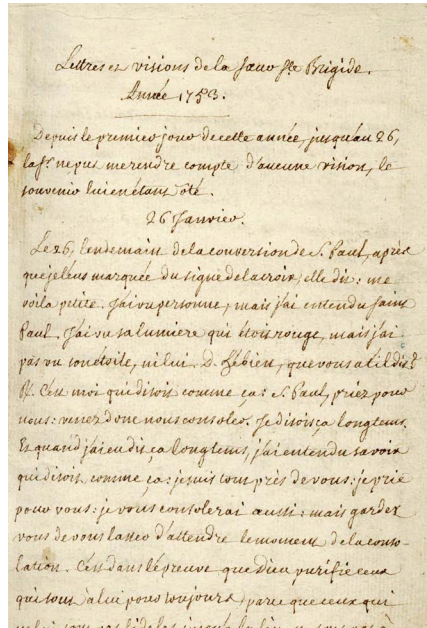 Lettres et visions de la Sœur Ste Brigide.
Année 1753.
Depuis le premier jour de cette année, jusqu'au 26,
la Sr. ne pus me rendre compte d'aucune vision, le
souvenir lui en étant ôté.
26 Janvier.
Le 26, lendemain de la conversion de S. Paul, après
que je l'eus marquée du signe de la croix, elle dit: me
voila petite. J'ai vu personne, mais j'ai entendu Saint
Paul. J'ai vu sa lumiere qui étoit rouge, mais j'ai
pas vu son étoile, ni lui. D. Hé bien, que vous a t il dit?
R. C'est moi qui disoit comme ça: S. Paul, priez pour
nous: venez donc nous consoler. Je disois ça longtems.
Et quand j'ai eu dit ça longtems, j'ai entendu sa voix
qui disoit, comme ça: je suis tout près de vous: je prie
pour vous: je vous consolerai aussi: mais gardez
vous de vous lasser d'attendre le moment de la conso-
lation. C'est dans l'épreuve que Dieu purifie ceux
qui sont à lui pour toujours, parce que ceux qui